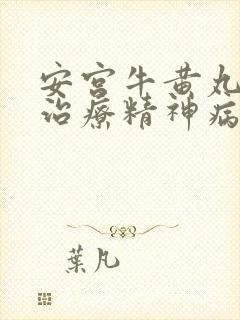 安宫牛黄丸
治療精神病
葉凡